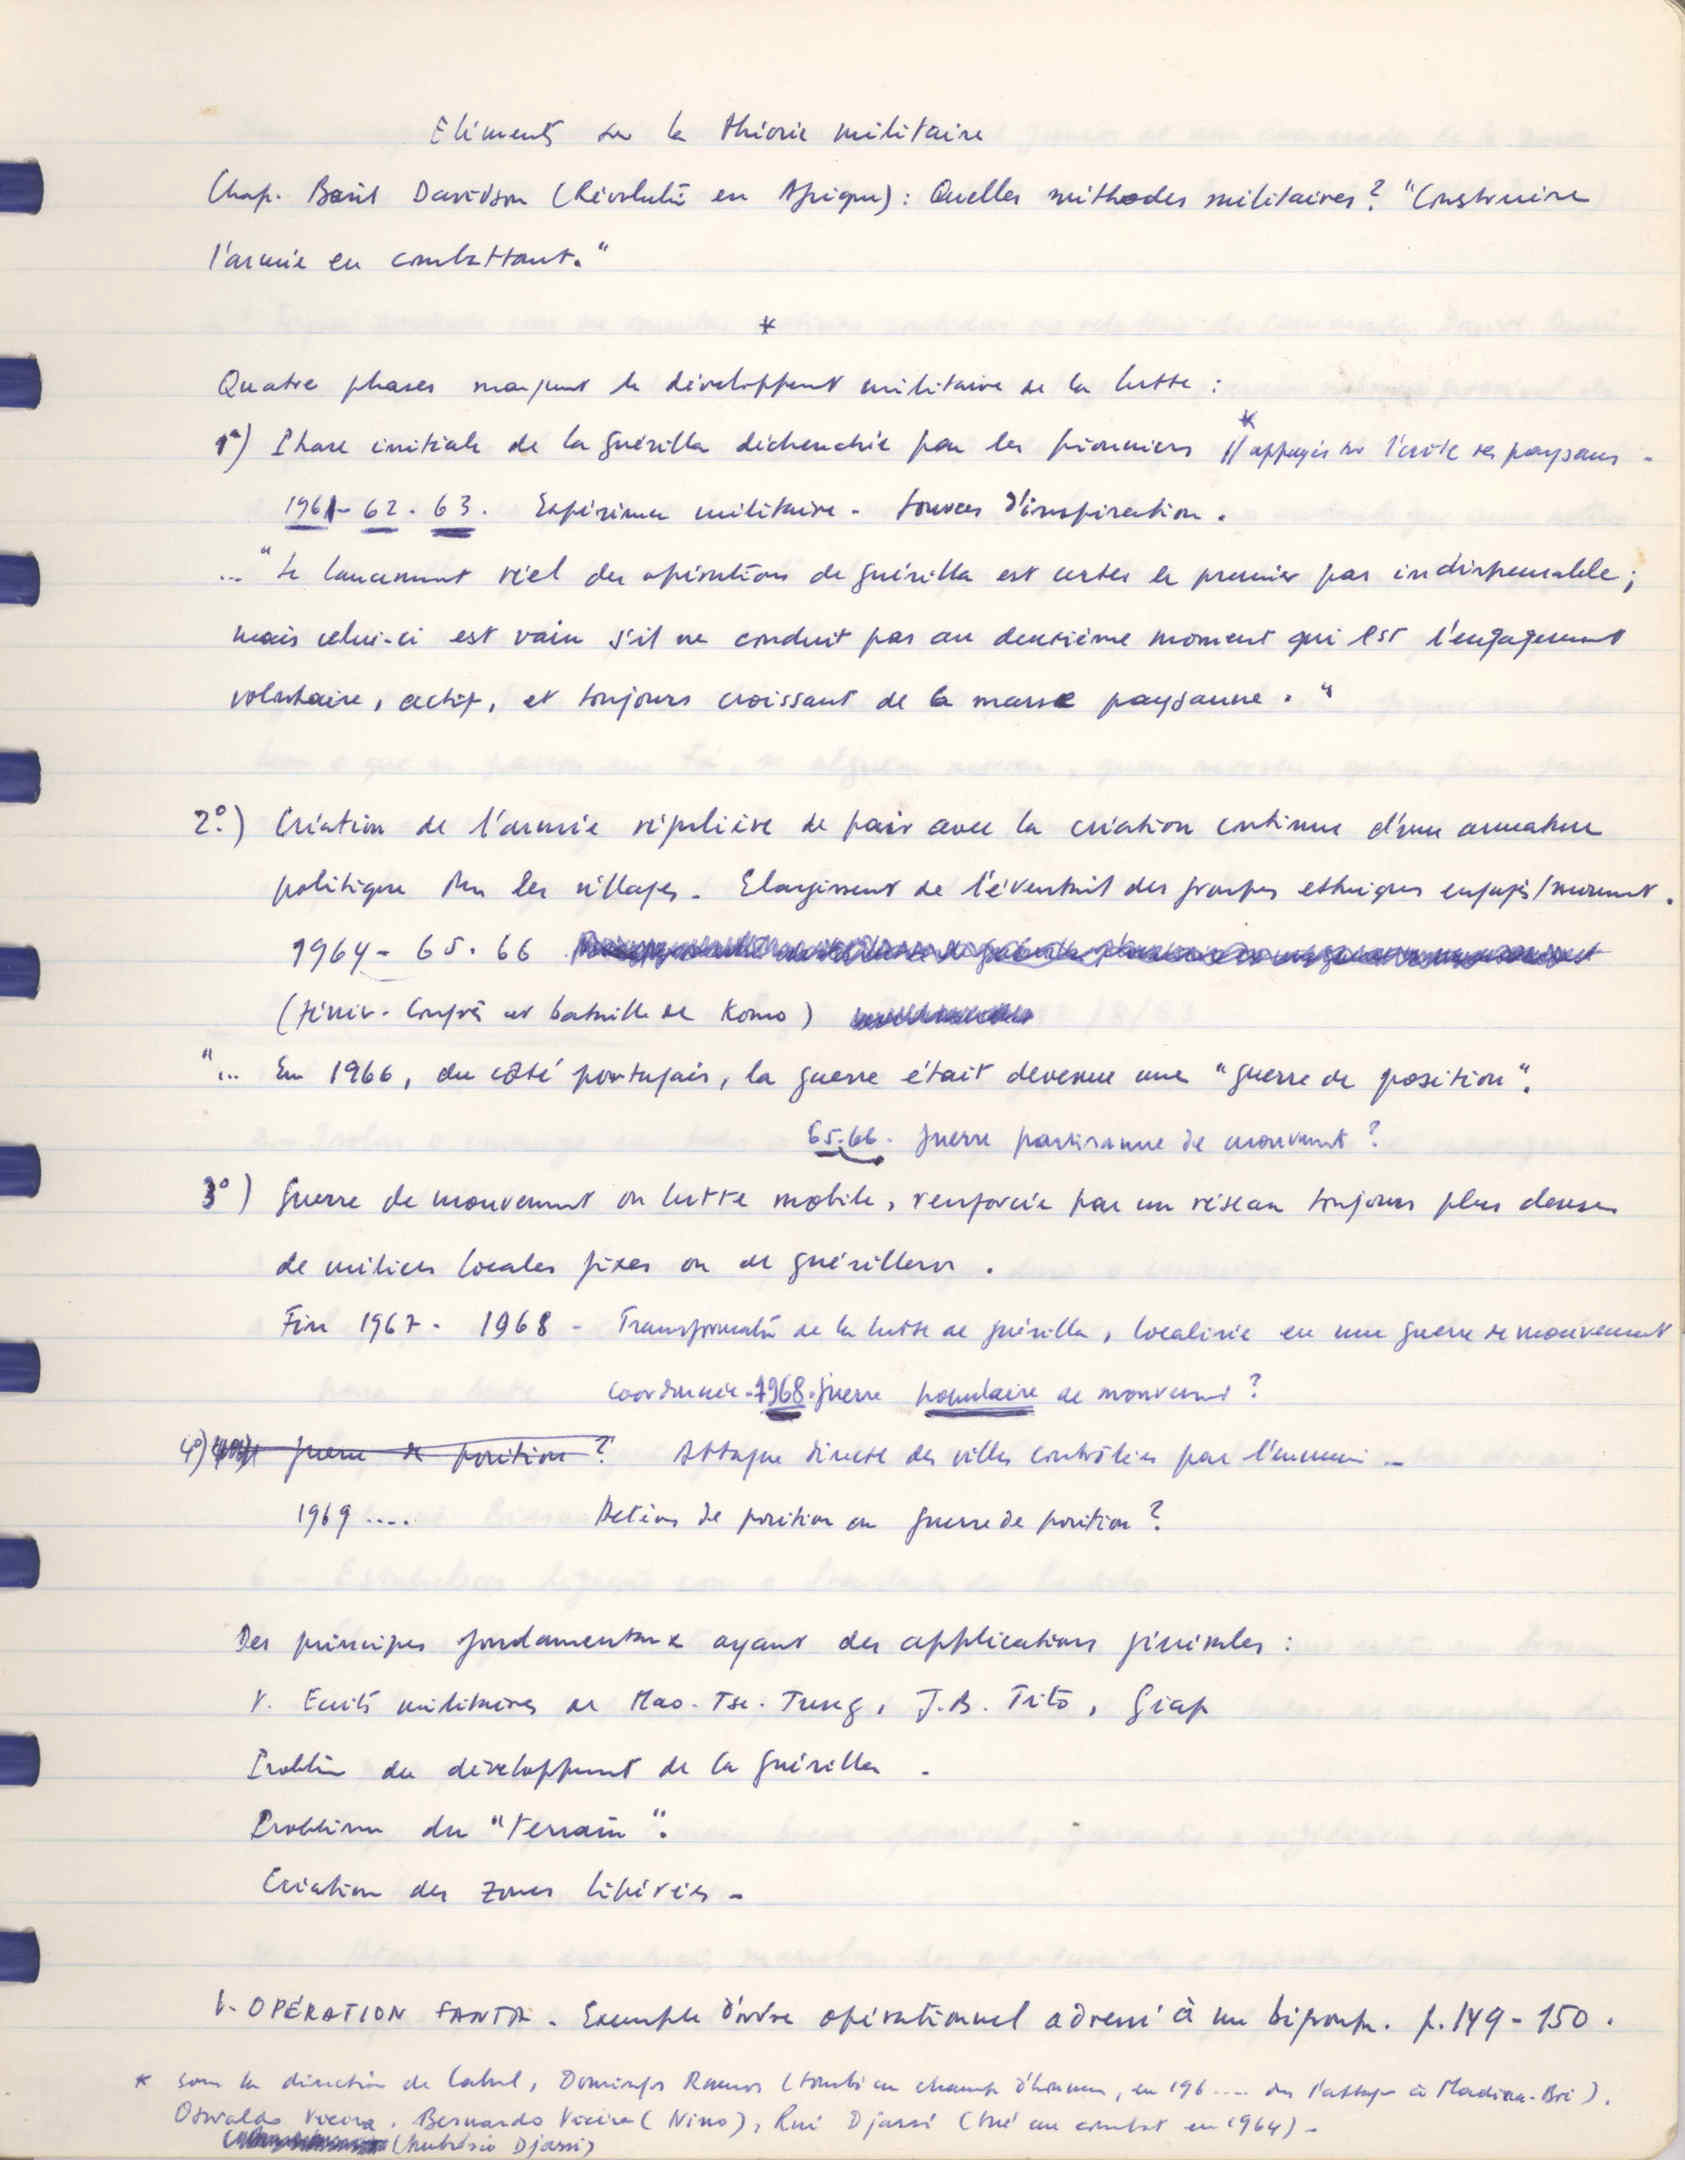 Eléments sur la théorie militaire
Chap. Basil Davidson (Révolutº en Afrique) : Quelles méthodes militaires ? "Construire
l'armée en combattant."
*
Quatre phases marquent le développent militaire de la lutte :
1º) Phase initiale de la guérilla déclenchée par les pionniers // * appuyés sur l'unité des paysans -
1961 - 62 - 63. Expérience militaire - Sources d'inspiration.
... "Le lancement réel des opérations de guérilla est certes le premier pas indispensable ;
mais celui-ci est vain s'il ne conduit pas au deuxième moment qui est l'engagement
volontaire, actif, et toujours croissant de la masse paysanne."
2º.) Création de l'armée régulière de pair avec la création continue d'une armature
politique dans les villages - Elargissement de l'éventail des groupes ethniques engagés /
1964 - 65 - 66
(Févier - Congrès et bataille de Komo)
"... En 1966, du côté portugais, la guerre était devenue une "guerre de position".
65-66 - guerre partisanne de mouvement ?
3º) Guerre de mouvement ou lutte mobile, renforcée par un réseau toujours plus dense
de milices locales fixes ou de guérilleros.
Fin 1967 - 1968 - Transformatº de la lutte de guérilla, localisée en une guerre de mouvement
coordonnée - 1968 - guerre populaire de mouvement ?
4º) guerre de position ? Attaque directe des villes contrôlées par l'ennemi -
1969 .... Actions de position ou guerre de position ?
Des principes fondamentaux ayant des applications générales :
V. Ecrits militaires de Mao-Tse-Tung, J.B. Tito, Giap
Problème du développent de la guérilla -
Problème du "terrain".
Création des zones libérées -
V. OPÉRATION FANTA - Exemple d'ordre opérationnel adressé à un bigroupe. p. 149 - 150.
* sous la direction de Cabral, Domingos Ramos (tombé au champ d'honneur, en 196.... dans l'attaque à Madina-Boé).
Osvaldo Vieira, Bernardo Vieira (Nino), Rui Djassi (tué au combat en 1964) -
(Djassi)